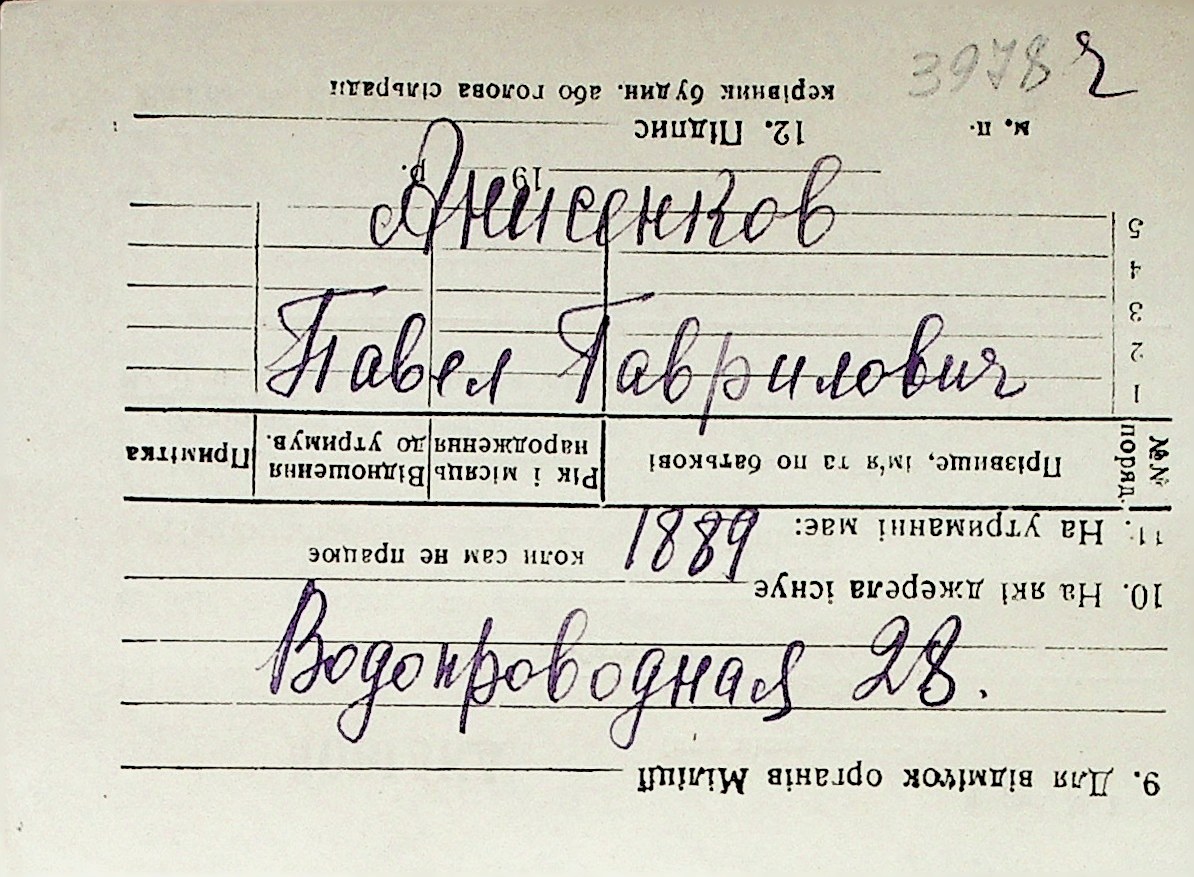 3978 ч
Анисенков
Павел Гаврилович
1889
Водопроводная 28.
9. Для відміток органів Міліції
10. На які джерела існує
коли сам не працює
11. На утриманні має:
№№ поряд. Прізвище, ім'я та по батькові Рік і місяць народження Відношення до утримув. Примітка
1
2
3
4
5
19 р.
м. п. 12. Підпис
керівник будин. або голова сільради